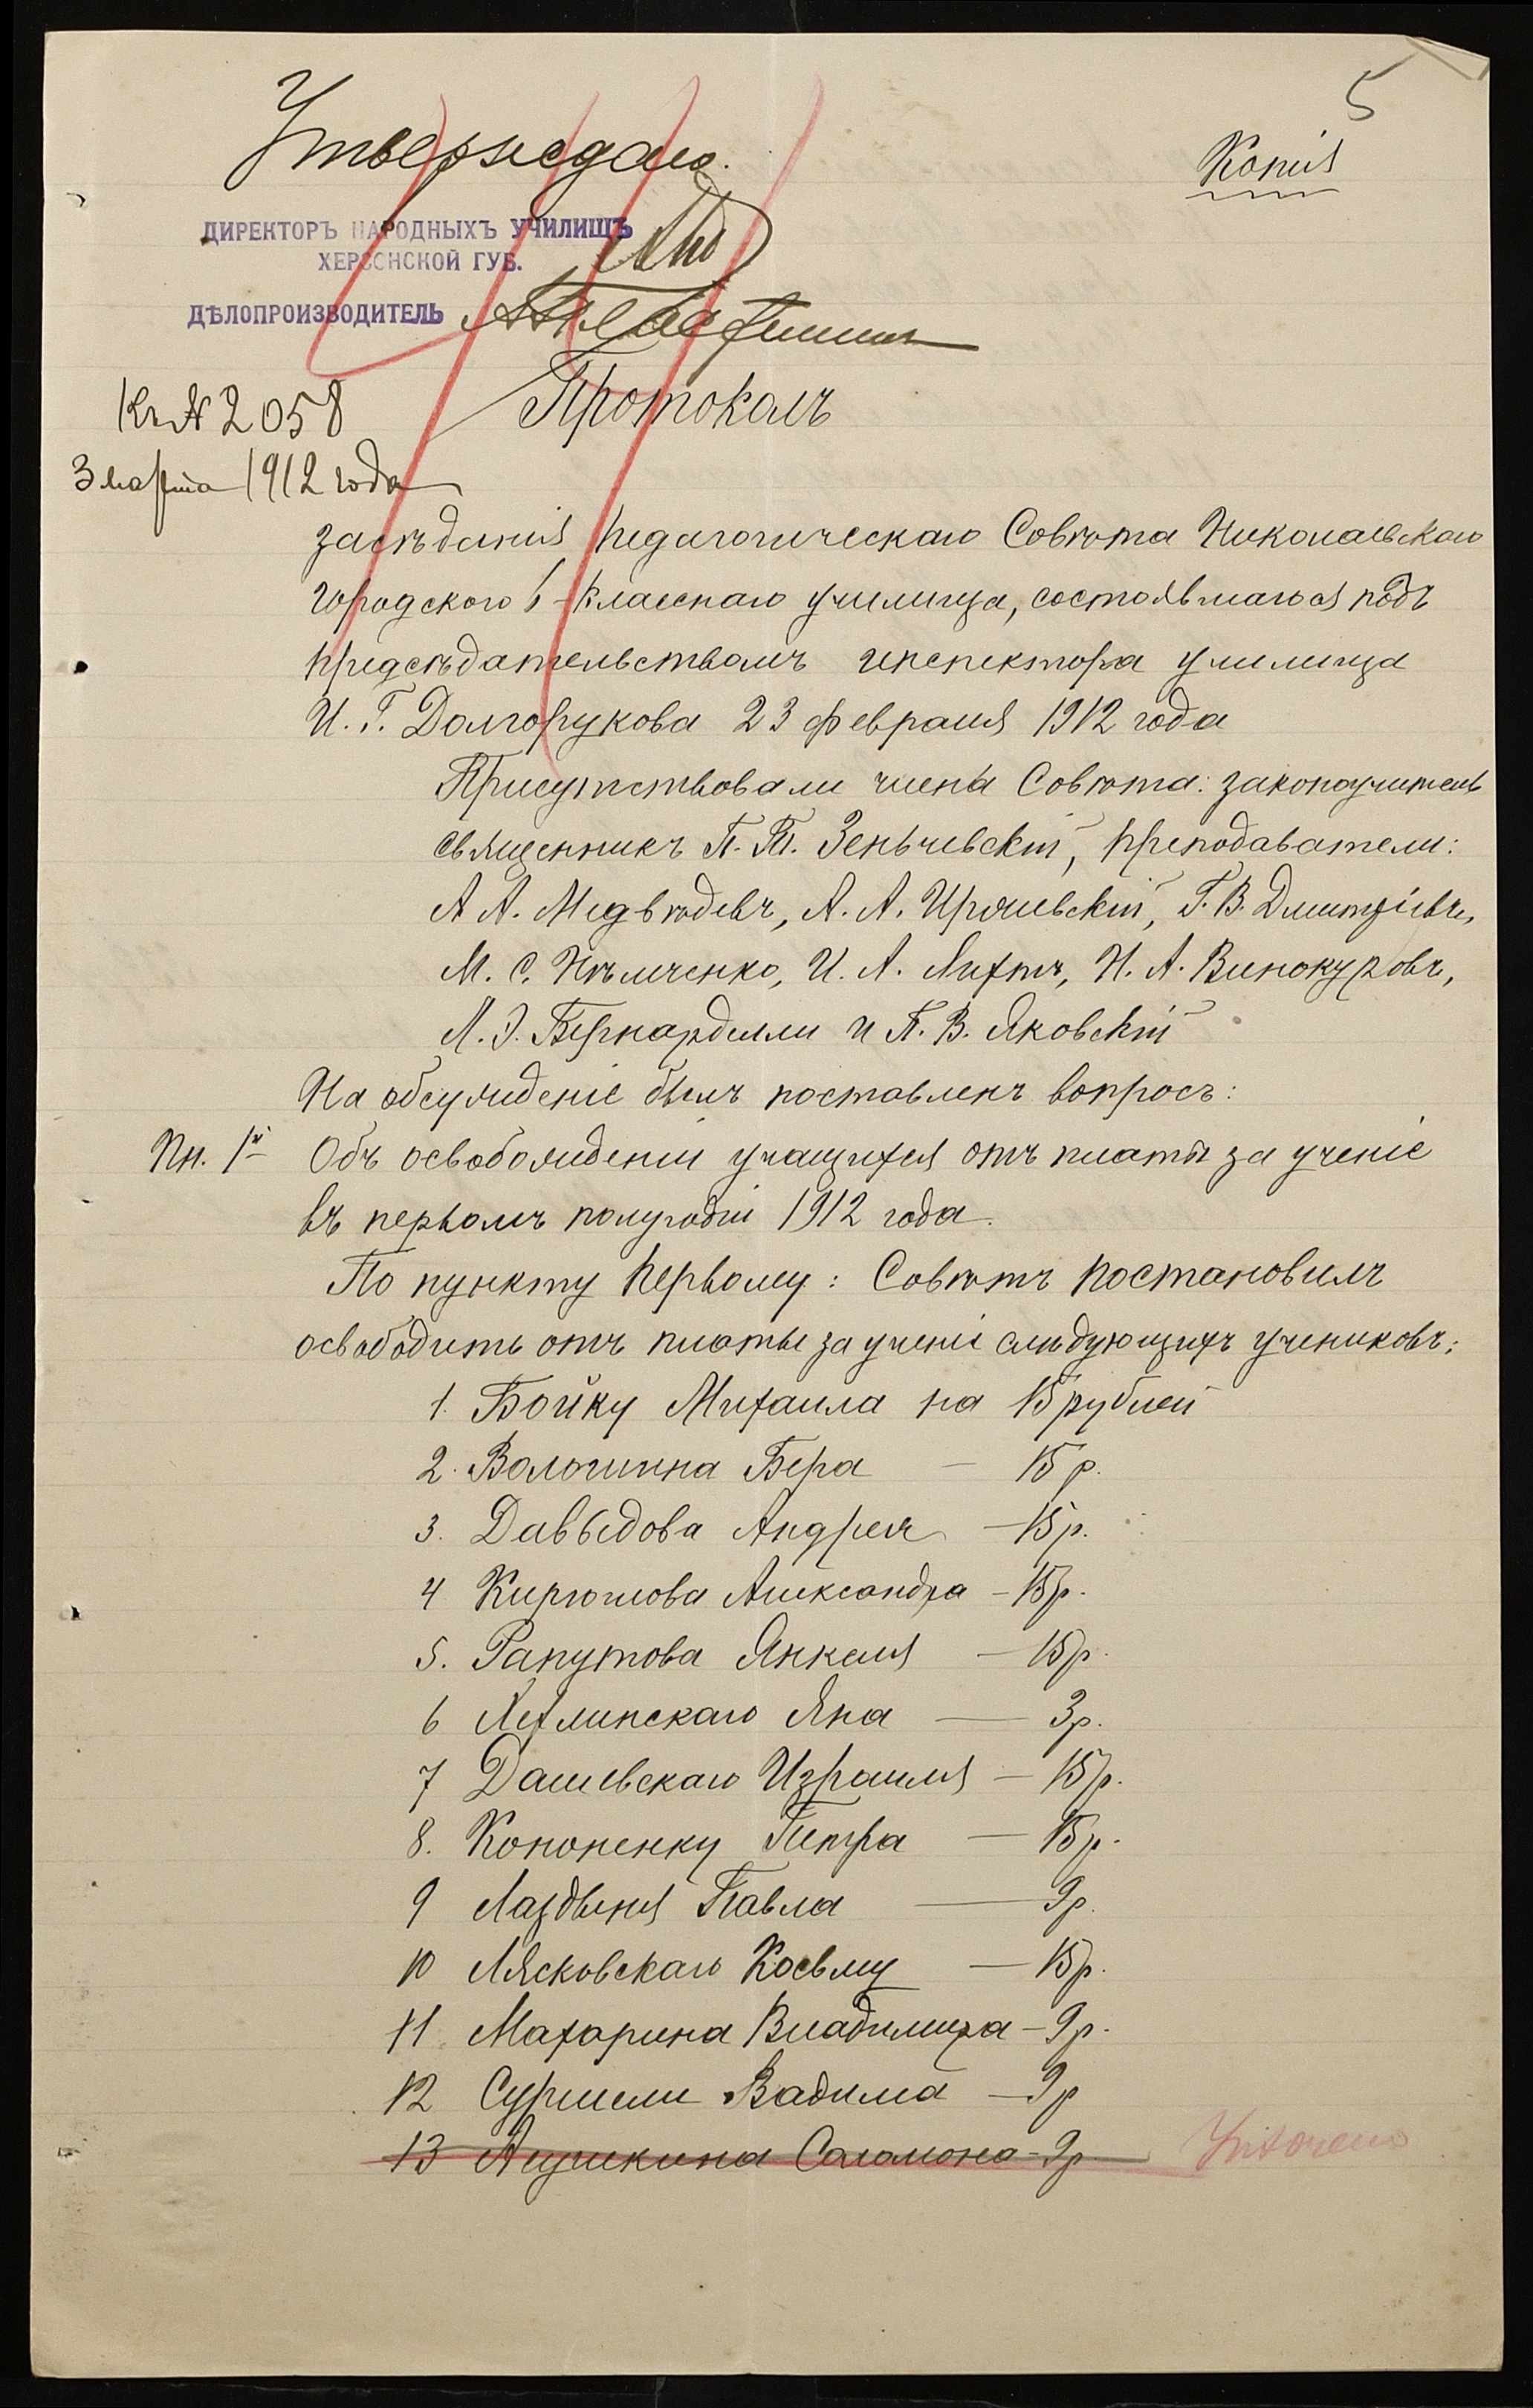 5
Копія
Утверждаю.
ДИРЕКТОРЪ НАРОДНЫХЪ УЧИЛИЩЪ
ХЕРСОНСКОЙ ГУБ.
ДѢЛОПРОИЗВОДИТЕЛЬ
Къ № 2058
3 марта 1912 года
Протоколъ
засѣданія педагогическаго Совѣта Николаевскаго
городского 6-класснаго училища, состоявшагося подъ
предсѣдательствомъ инспектора училища
И. Г. Долгорукова 23 февраля 1912 года
Присутствовали члены Совѣта: законоучитель
священникъ П. П. Зеньчевскій, преподаватели:
А А. Медвѣдевъ, А. А. Г. В. Дмитріевъ,
М. С. Нѣмченко, И. А. Лихтъ, Н. А. Винокуровъ,
Л. Э. Бернарделли и П. В. Яковскій
На обсужденіе былъ поставленъ вопросъ:
Пн. 1й Объ освобожденіи учащихся отъ платы за ученіе
въ первомъ полугодіи 1912 года.
По пункту первому: Совѣтъ постановилъ
освободить отъ платы за ученіе слѣдующихъ учениковъ:
1. Бойку Михаила на 15 рублей
2. Вологинна Бера — 15 р.
3. Давыдова Андрея — 15 р.
4 Кирюшова Александра — 15 р.
5. Рапутова Янкеля — 15 р.
6 Яна — 3 р.
7 Дашевскаго Израиля — 15 р.
8. Кононенку Петра — 15 р.
9 Лаздыня Павла — 9 р.
10 Лясковскаго Косьму — 15 р.
11. Махарина Владимира — 9 р.
12 Сурмели Вадима — 9 р
13 Соломона — 9 р